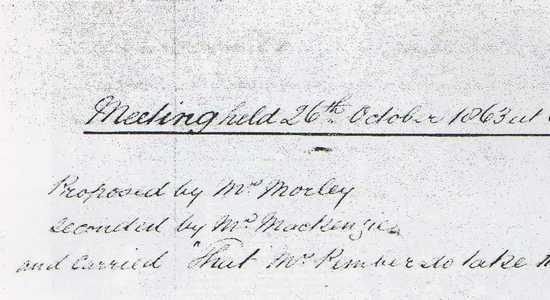 Meeting held 26th October 1863 at
Proposed by Mr Morley
seconded by Mr Mackenzie
and carried "That Mr Pember do take